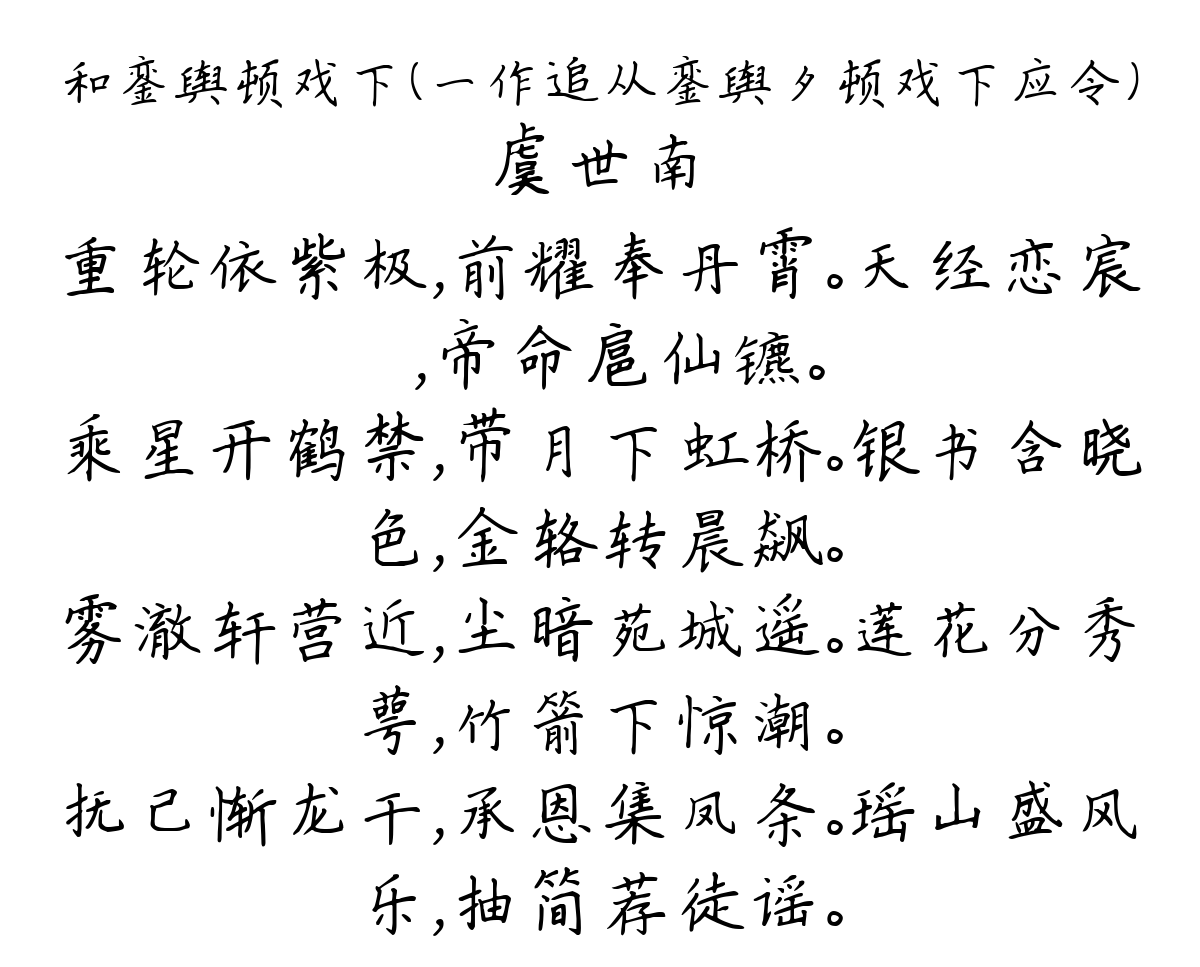 和銮舆顿戏下(一作追从銮舆夕顿戏下应令)
虞世南
重轮依紫极,前耀奉丹霄。天经恋宸
,帝命扈仙镳。
乘星开鹤禁,带月下虹桥。银书含晓
色,金辂转晨飙。
雾澈轩营近,尘暗苑城遥。莲花分秀
萼,竹箭下惊潮。
抚己惭龙干,承恩集凤条。瑶山盛风
乐,抽简荐徒谣。